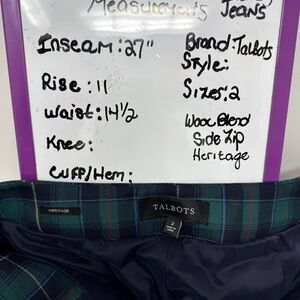 Measurements Jeans
Inseam: 27"
Rise: 11
Waist: 14 1/2
Knee:
Cuff/Hem:
Brand: Talbots
Style:
Sizes: 2
Wool Blend
Side Zip
Heritage
HERITAGE
TALBOTS
2